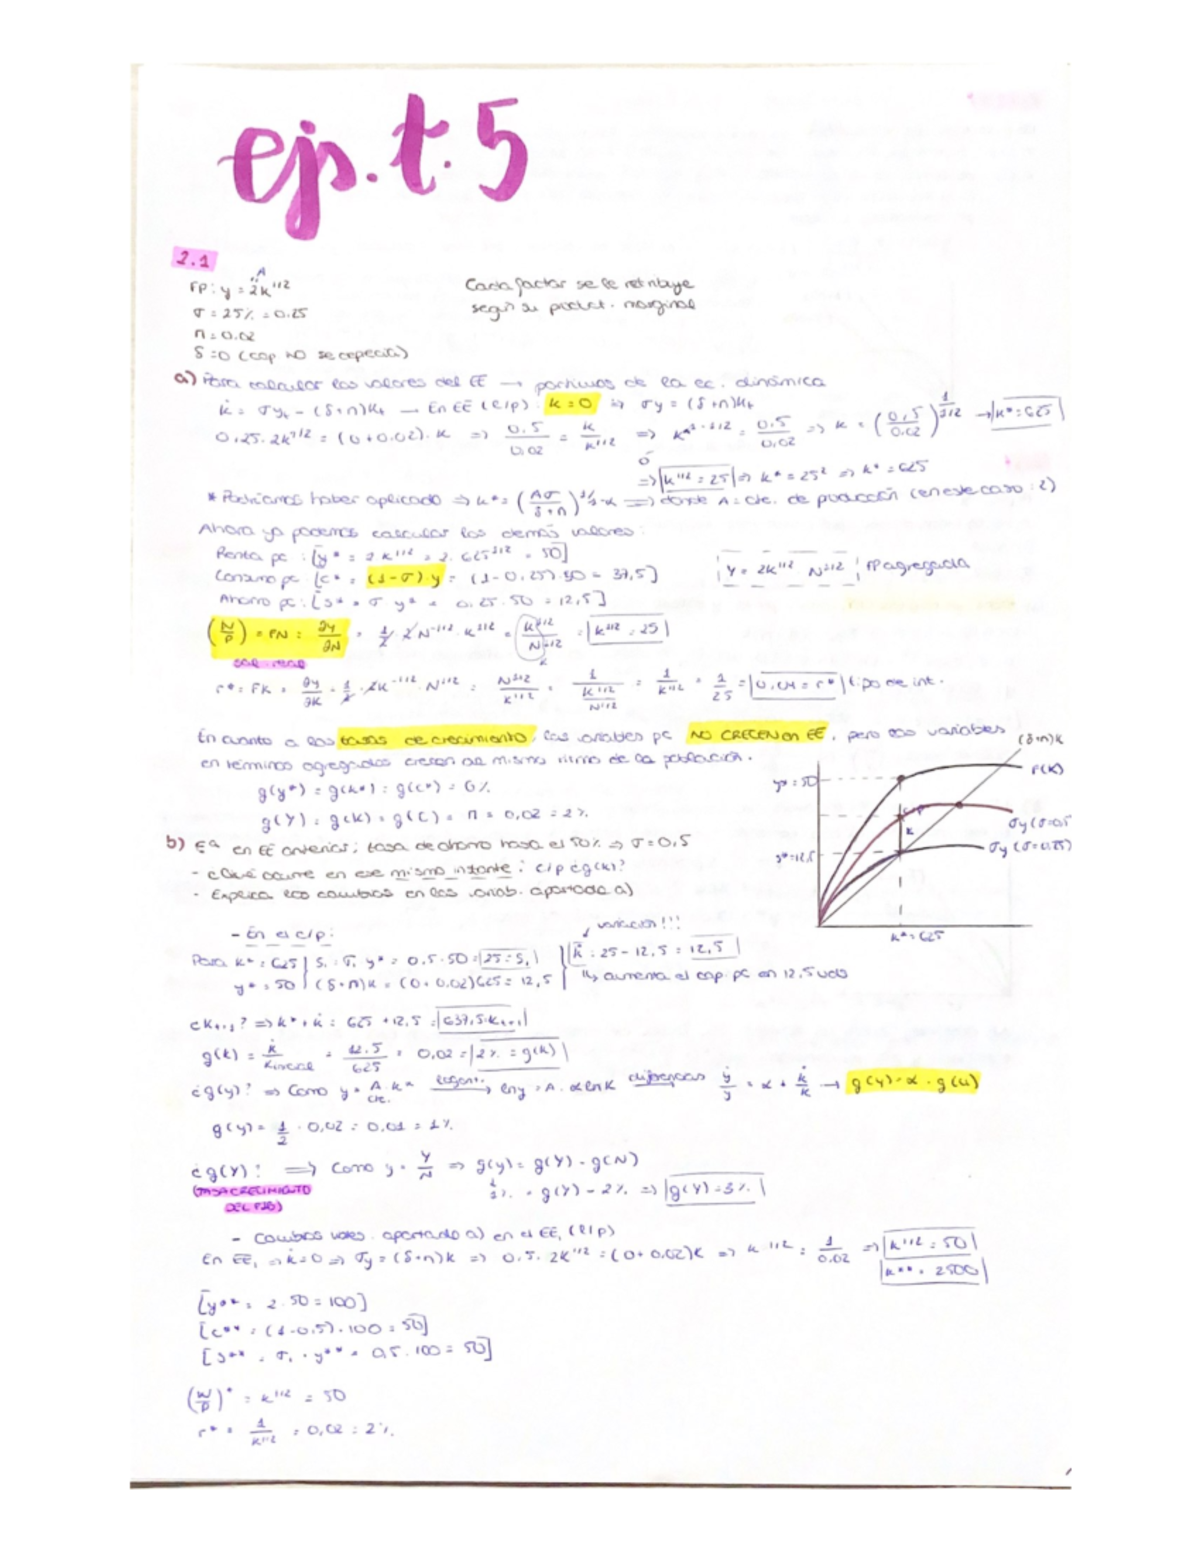 ejs. t. 5
2.1
FP: y = 2k^1/2
A
Cada factor se le retribuye
según su product. marginal
σ = 25% = 0.25
n = 0.02
δ = 0 (cap NO se deprecia)
a) Para calcular los valores del EE → partimos de la ec. dinámica
k̇ = σyt - (δ+n)kt → En EE (l/p): k̇ = 0 ⇒ σy = (δ+n)kt
0,25 · 2k^1/2 = (0+0.02) · k ⇒ 0.5/0.02 = k/k^1/2 ⇒ k^1-1/2 = 0.5/0.02 ⇒ k = (0.5/0.02)^1/1/2 → k* = 625
ó
⇒ k^1/2 = 25 ⇒ k* = 25² ⇒ k* = 625
* Podríamos haber aplicado ⇒ k* = (Aσ/δ+n)^1/1-α ⇒ donde A = cte. de producción (en este caso: 2)
Ahora ya podemos calcular los demás valores:
Renta pc: [y* = 2k^1/2 = 2 · 625^1/2 = 50]
Consumo pc [c* = (1-σ) · y = (1-0,25) · 50 = 37,5]
Y = 2K^1/2 N^1/2 FP agregada
Ahorro pc: [s* = σ y* = 0.25 · 50 = 12,5]
(W/P) = PN = ∂Y/∂N = 1/2 · 2N^-1/2 · K^1/2 = K^1/2/N^1/2 = k^1/2 = 25
sal. real
r* = PK = ∂Y/∂K = 1/2 · 2K^-1/2 · N^1/2 = N^1/2/K^1/2 = 1/K^1/2/N^1/2 = 1/k^1/2 = 1/25 = 0,04 = r* tipo de int.
En cuanto a las tasas de crecimiento, las variables pc NO CRECEN en EE, pero las variables
en términos agregados crecen al mismo ritmo de la población.
g(y*) = g(k*) = g(c*) = 0%
g(Y) = g(K) = g(C) = n = 0,02 = 2%
(δ+n)k
F(K)
y* = 50
σy (σ=0,5
c/p
k̇
σy (σ=0.25)
s* = 12,5
k* = 625
b) Eª en EE anterior; tasa de ahorro hasta el 50% ⇒ σ = 0,5
- ¿Qué ocurre en ese mismo instante: c/p ¿g(k)?
- Explica los cambios en las variab. apartado a)
- En el c/p:
variación!!!
Para k* = 625 | S1 = σ1 y* = 0.5 · 50 = 25 = S1
y* = 50 | (δ+n)k = (0+0.02)625 = 12,5
k̇ = 25 - 12,5 = 12,5
↳ aumenta el cap. pc en 12.5 uds
¿kt+1? ⇒ k* + k̇ = 625 + 12,5 = 637,5 = kt+1
g(k) = k̇/kinicial = 12.5/625 = 0,02 = 2% = g(k)
¿g(y)? ⇒ Como y = A · k^α logarit. lny = A · αlnk diferencias ẏ/y = α + k̇/k → g(y) = α · g(k)
cte.
g(y) = 1/2 · 0,02 = 0,01 = 1%
¿g(Y)? ⇒ Como y = Y/N ⇒ g(y) = g(Y) - g(N)
(TASA CRECIMIENTO
DEL PIB)
1% = g(Y) - 2% ⇒ g(Y) = 3%
- Cambios vales. apartado a) en el EE1 (l/p)
En EE1 ⇒ k̇ = 0 ⇒ σy = (δ+n)k ⇒ 0.5 · 2k^1/2 = (0+0.02)k ⇒ k^1/2 = 1/0.02 ⇒ k^1/2 = 50
k** = 2500
[y** = 2 · 50 = 100]
[c** = (1-0.5) · 100 = 50]
[s** = σ1 · y** = 0,5 · 100 = 50]
(W/P)* = k^1/2 = 50
r* = 1/k^1/2 = 0,02 = 2%